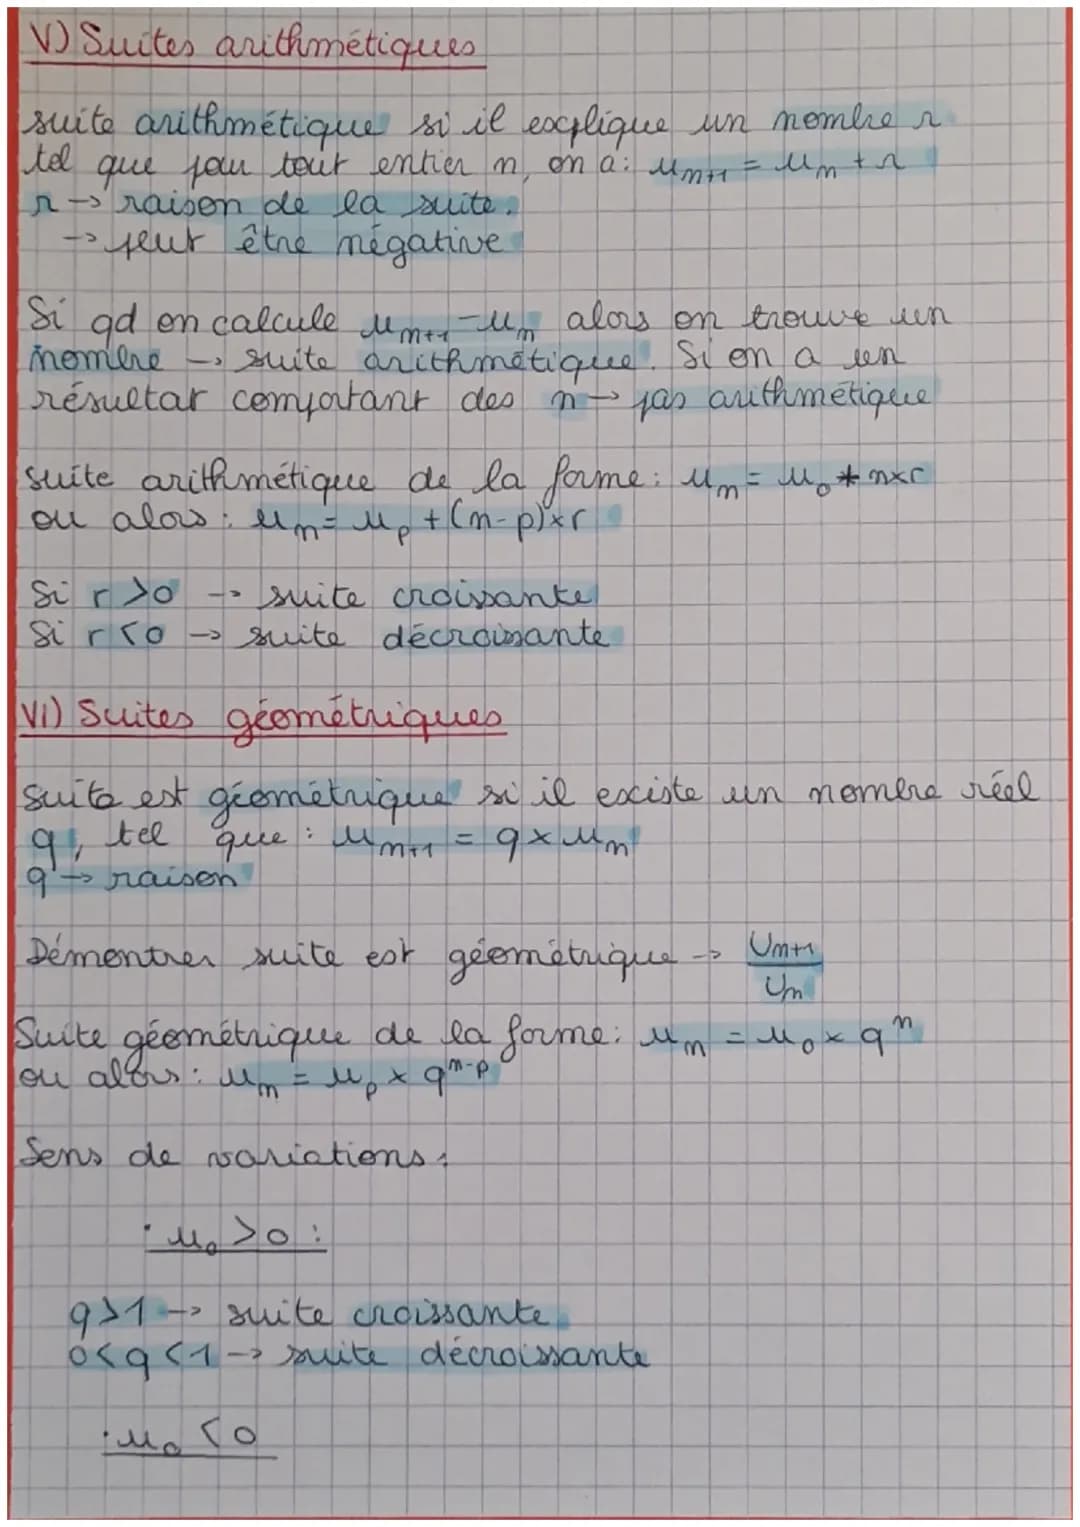 V) Suites arithmétiques
suite arithmétique si il explique un nombre r
tel que pour tout entier n, on a : un+1 = un + r
r → raison de la suite.
→ peut être négative
Si qd on calcule un+1 - un alors on trouve un
nombre → suite arithmétique. Si on a un
résultat comportant des n → pas arithmétique
suite arithmétique de la forme : un = u0 * n×r
ou alors : un = up + (n-p)×r
Si r >0 → suite croissante
Si r <0 → suite décroissante
VI) Suites géométriques
Suite est géométrique si il existe un nombre réel
q, tel que : un+1 = q × un
q → raison
Démontrer suite est géométrique → Un+1
Un
Suite géométrique de la forme : un = u0 × qⁿ
ou alors : un = up × qⁿ⁻ᵖ
Sens de variations :
· u0 >0 :
q>1 → suite croissante
0<q<1 → suite décroissante
· u0 <0